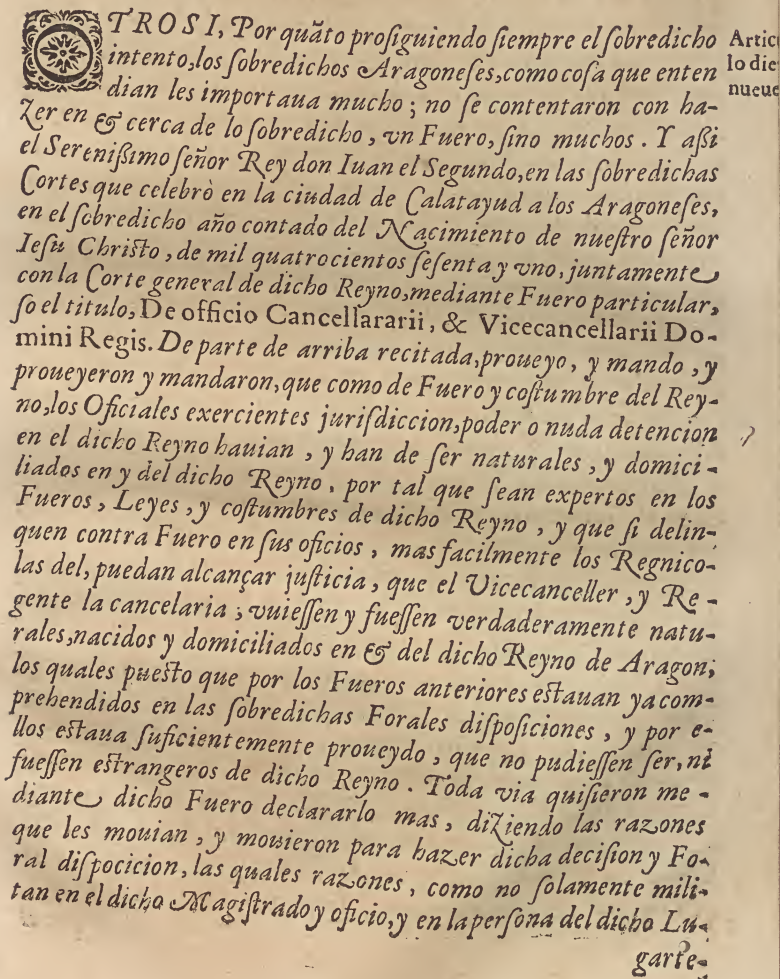 OTROSI, Por quãto prosiguiendo siempre el sobredicho
intento, los sobredichos Aragoneses, como cosa que enten
dian les importaua mucho; no se contentaron con ha-
zer en & cerca de lo sobredicho, vn Fuero, sino muchos. Y aßi
el Serenißimo señor Rey don Iuan el Segundo, en las sobredichas
Cortes que celebrò en la ciudad de Calatayud a los Aragoneses,
en el sobredicho año contado del Nacimiento de nuestro señor
Iesu Christo, de mil quatrocientos sesenta y vno, juntamente
con la Corte general de dicho Reyno, mediante Fuero particular,
so el titulo, De officio Cancellararii, & Vicecancellarii Do-
mini Regis. De parte de arriba recitada, proueyo, y mando, y
proueyeron y mandaron, que como de Fuero y costumbre del Rey-
no, los Oficiales exercientes jurisdiccion, poder o nuda detencion
en el dicho Reyno hauian, y han de ser naturales, y domici-
liados en y del dicho Reyno, por tal que sean expertos en los
Fueros, Leyes, y costumbres de dicho Reyno, y que si delin-
quen contra Fuero en sus oficios, mas facilmente los Regnico-
las del, puedan alcançar justicia, que el Vicecanceller, y Re-
gente la cancelaria; vuiessen y fuessen verdaderamente natu-
rales, nacidos y domiciliados en & del dicho Reyno de Aragon;
los quales puesto que por los Fueros anteriores estauan ya com-
prehendidos en las sobredichas Forales disposiciones, y por e-
llos estaua suficientemente proueydo, que no pudiessen ser, ni
fuessen estrangeros de dicho Reyno. Toda via quisieron me-
diante dicho Fuero declararlo mas, diziendo las razones
que les mouian, y mouieron para hazer dicha decision y Fo-
ral dispocicion, las quales razones, como no solamente mili-
tan en el dicho Magistrado y oficio, y en la persona del dicho Lu-
garte-
Articu
lo die
nueue